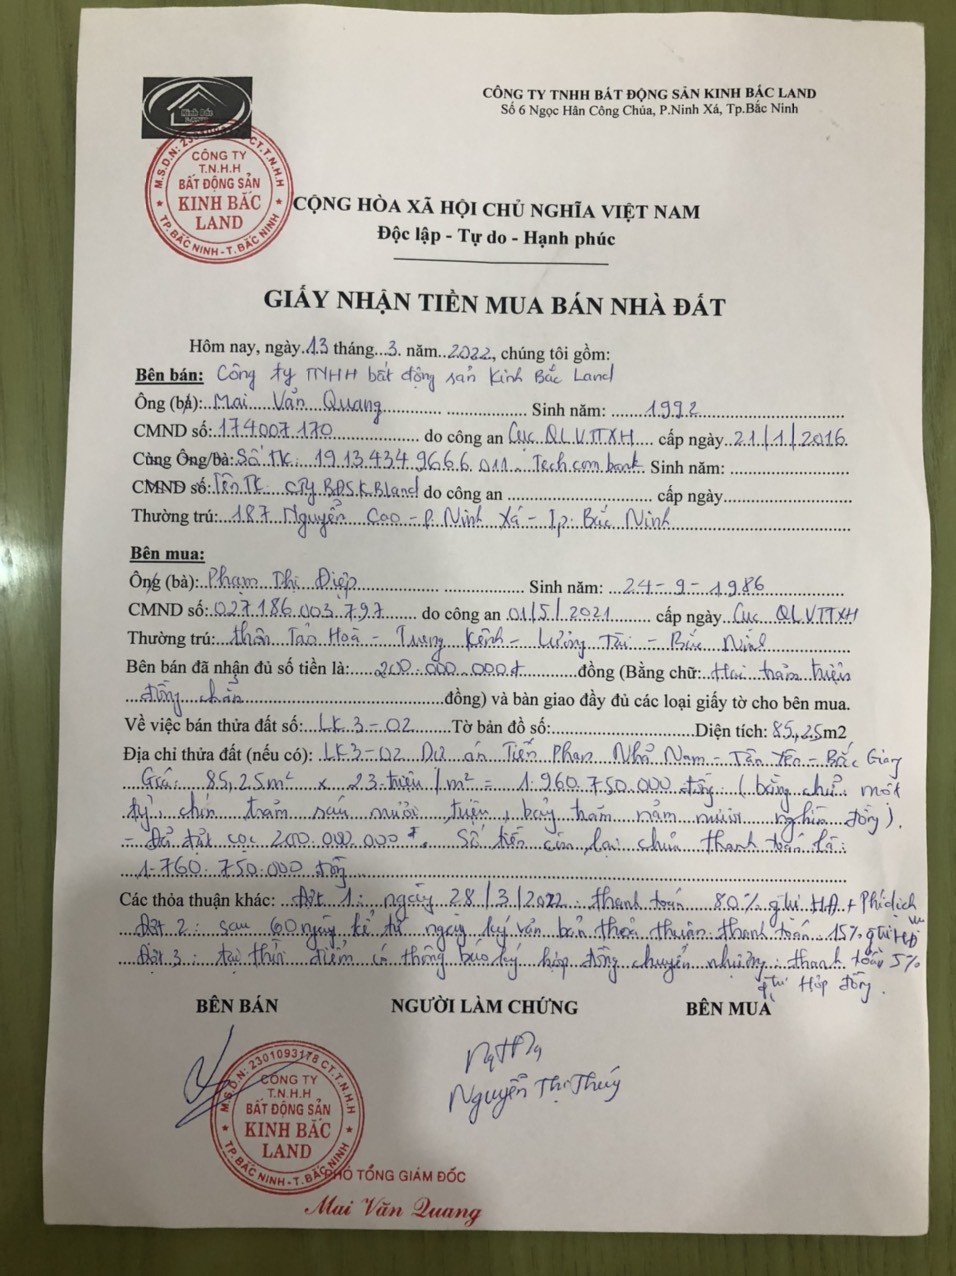 Kinh Bắc
LAND
CÔNG TY TNHH BẤT ĐỘNG SẢN KINH BẮC LAND
Số 6 Ngọc Hân Công Chúa, P.Ninh Xá, Tp.Bắc Ninh
CÔNG TY
T.N.H.H
BẤT ĐỘNG SẢN
KINH BẮC
LAND
TP.BẮC NINH-T.BẮC NINH
CỘNG HÒA XÃ HỘI CHỦ NGHĨA VIỆT NAM
Độc lập - Tự do - Hạnh phúc
GIẤY NHẬN TIỀN MUA BÁN NHÀ ĐẤT
Hôm nay, ngày 13 tháng 3 năm 2022, chúng tôi gồm:
Bên bán: Công ty TNHH bất động sản Kinh Bắc Land
Ông (bà): Mai Văn Quang Sinh năm: 1992
CMND số: 174007170 do công an Cục QLVTTXH cấp ngày 21/1/2016
Cùng Ông/bà: Số TK: 19134349666011 - Techcombank Sinh năm:
CMND số: Tên TK: CTy BĐS KBland do công an cấp ngày
Thường trú: 187 Nguyễn Cao - P. Ninh Xá - Tp. Bắc Ninh
Bên mua:
Ông (bà): Phạm Thị Điệp Sinh năm: 24-9-1986
CMND số: 027186003797 do công an 01/5/2021 cấp ngày Cục QLVTTXH
Thường trú: thôn Tảo Hoà - Trung Kênh - Lương Tài - Bắc Ninh
Bên bán đã nhận đủ số tiền là: 200.000.000đ đồng (Bằng chữ: Hai trăm triệu
đồng chẵn đồng) và bàn giao đầy đủ các loại giấy tờ cho bên mua.
Về việc bán thửa đất số: LK3-02 Tờ bản đồ số: Diện tích: 85,25m2
Địa chỉ thửa đất (nếu có): LK3-02 Dự án Tiến Phan Nhã Nam - Tân Yên - Bắc Giang
Giá: 85,25m² x 23 triệu/m² = 1.960.750.000 đồng (bằng chữ: một
tỷ, chín trăm sáu mươi triệu, bảy trăm năm mươi nghìn đồng).
- Đã đặt cọc 200.000.000đ. Số tiền còn lại chưa thanh toán là:
1.760.750.000 đồng
Các thỏa thuận khác: Đợt 1: ngày 28/3/2022 thanh toán 80% gtrị HĐ + Phí dịch vụ
Đợt 2: sau 60 ngày kể từ ngày ký văn bản thoả thuận thanh toán 15% gtrị HĐ
Đợt 3: tại thời điểm có thông báo ký hợp đồng chuyển nhượng: thanh toán 5%
gtrị Hợp đồng.
BÊN BÁN NGƯỜI LÀM CHỨNG BÊN MUA
Nguyễn Thị Thúy
M.S.D.N: 2301093178 CT.T.N.H.H
CÔNG TY
T.N.H.H
BẤT ĐỘNG SẢN
KINH BẮC
LAND
TP.BẮC NINH-T.BẮC NINH
PHÓ TỔNG GIÁM ĐỐC
Mai Văn Quang